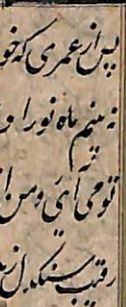 پس از عمری که خو
نه بینم ماه نو را د
تو می آئی و من از
رقیب سنگدل از